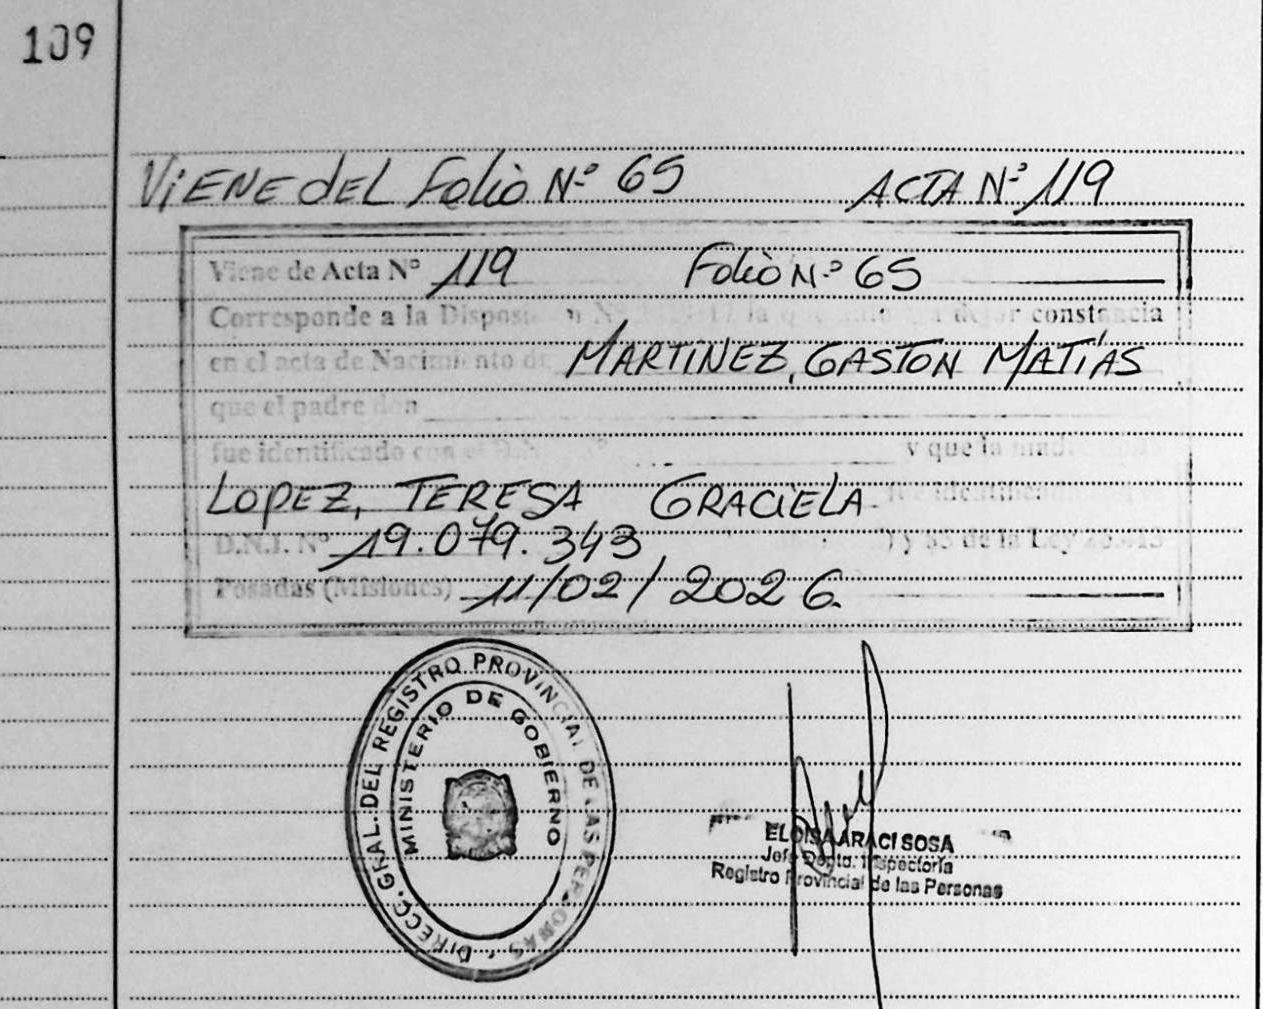 109
ViENE dEL Folio Nº 65 ACTA Nº 119
Viene de Acta Nº 119 Folio Nº 65
Corresponde a la la dejar constancia
en el acta de Nacimiento de MARTINEZ, GASTON MATÍAS
que el padre don
fue identificado con y que la
LOPEZ, TERESA GRACIELA fue identificada
D.N.I. Nº 19.079.343 y 85 de la Ley
Posadas (Misiones) 11/02/2026.
DIRECC. GRAL. DEL REGISTRO PROVINCIAL DE LAS PERSONAS
MINISTERIO DE GOBIERNO
ELOISA ARACI SOSA
Jefe Depto. Inspectoría
Registro Provincial de las Personas